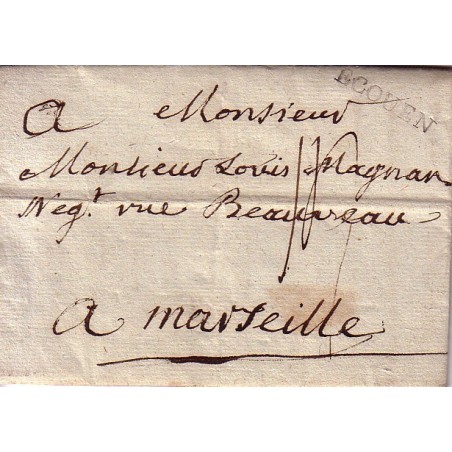 ECOUEN
A Monsieur
Monsieur Louis Magnan
Neg.t rue Beauveau
A marseille